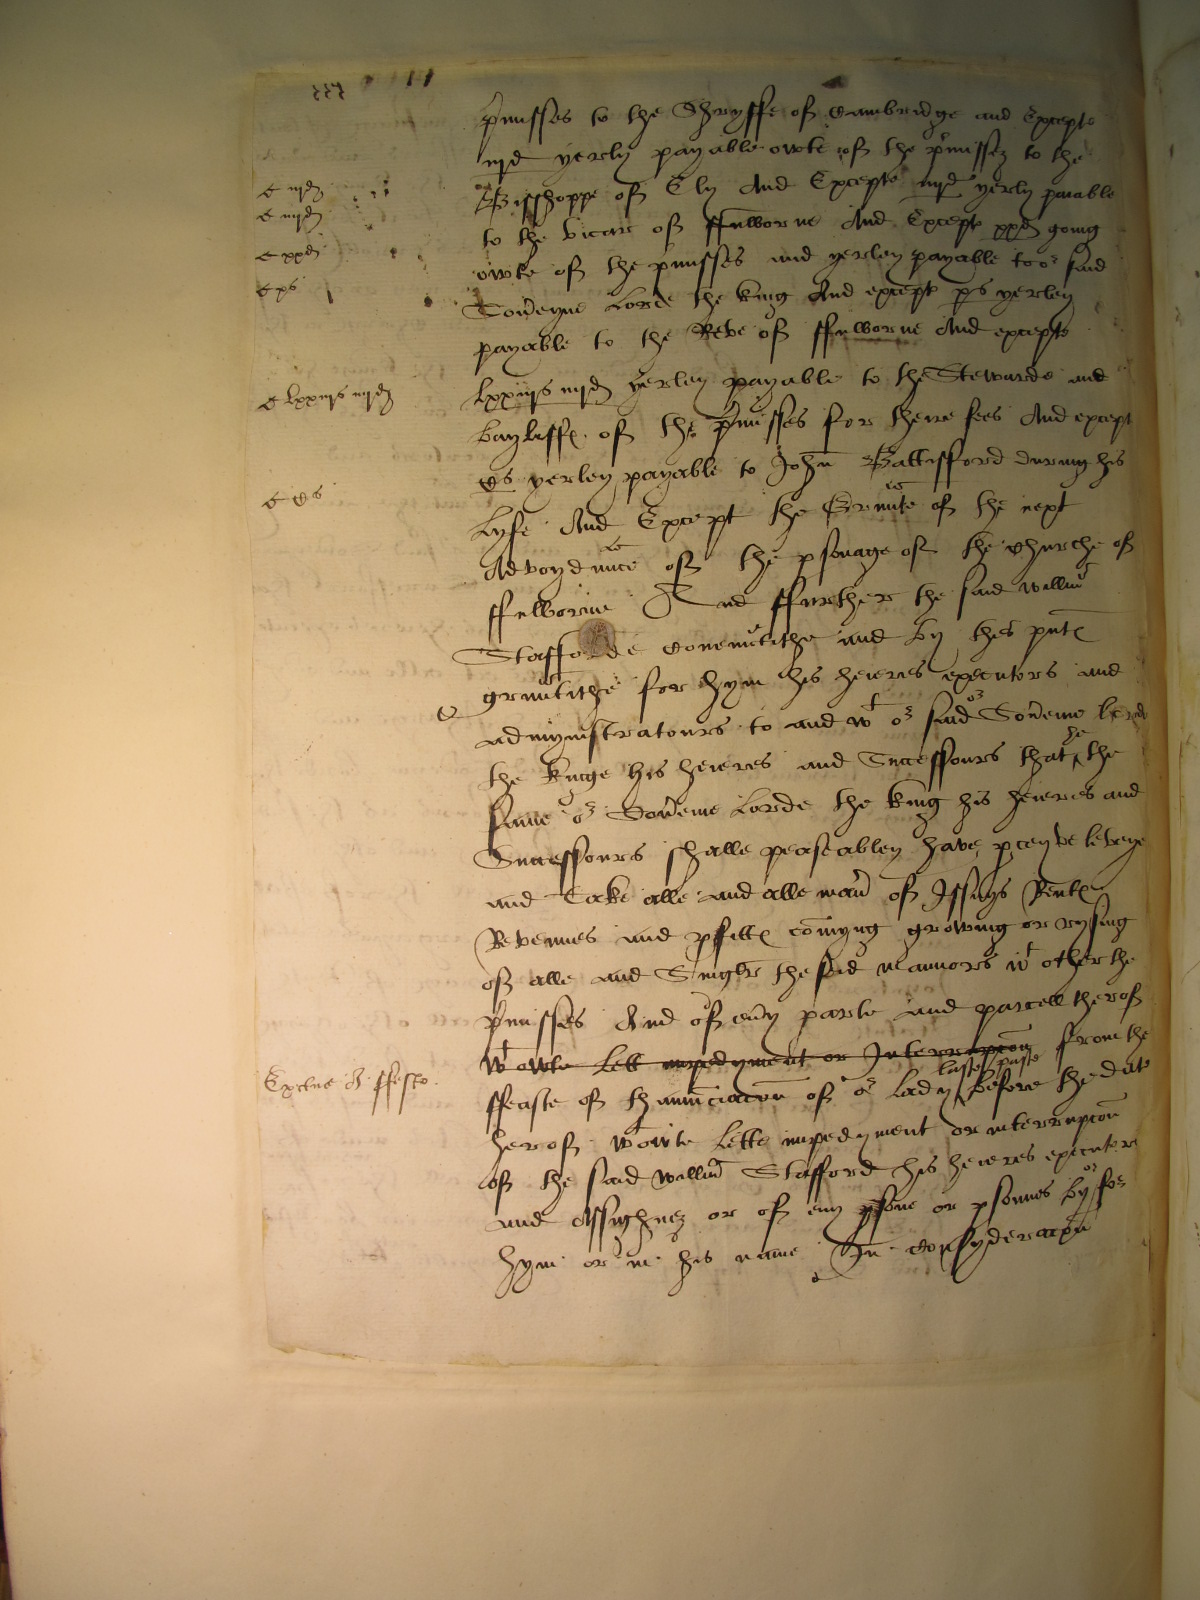 p'misses to the Shryffe of Cambridge and Excepte
iiijd yerly payable owte of the p'missez to the
Bisshoppe of Ely And Excepte iiijd yerly paiable
to the vicar of ffulborne And Excepte xxd going
owte of the p'misses and yerley payable to or said
Sov'eyne Lorde the king And except xs yerley
payable to the Reve of ffulborne And excepte
lxxiijs iiijd yerley payable to the Stewarde and
bayliff of the p'misses for there fees And except
Cs yerley payable to John Battisford during his
lyfe And Except the Graunte of the next
Advoydaunce of the p'sonage of the Churche of
ffulborne And ffurther the said willm
Stafforde Covenntithe and by thes p'nt
grauntithe for hym his heieres executors and
admynistratours to and wt or said Sov'eine lorde
the kinge his heieres and Successours that he the
same or Sov'eine Lorde the king his heieres and
Successours shalle peaseabley have p'ceyve leveye
and Take alle and alle man' of Issuys Rent
Revenues and p'fitt comyng growing or rysing
of alle and Singler the said mannors wt other the
p'misses And of eu'y parte and parcell therof
wt owte lett impedyment or Interrupcon from the
ffeaste of thannunciacon of or Lady laste paste before the date
herof wt owte lette impedyment or interrupcon
of the said willm Stafford his heieres executors
and Assighnez or of eny p'sone or p'sonnes by or for
hym or in his name In Consyderacon
iiijd
iiijd
xxd
xs
lxxiijs iiijd
Cs